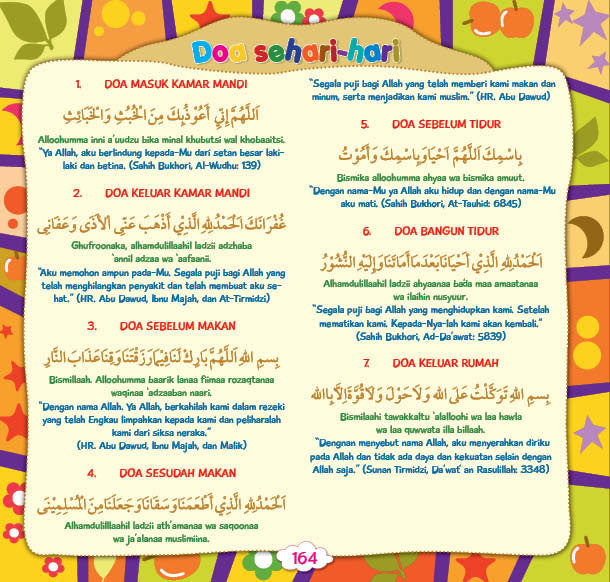 Doa sehari-hari
1. DOA MASUK KAMAR MANDI
اَللّٰهُمَّ اِنِّي اَعُوْذُبِكَ مِنَ الْخُبُثِ وَالْخَبَائِثِ
Alloohumma inni a'uudzu bika minal khubutsi wal khobaaitsi.
"Ya Allah, aku berlindung kepada-Mu dari setan besar laki-
laki dan betina. (Sahih Bukhori, Al-Wudhu: 139)
2. DOA KELUAR KAMAR MANDI
غُفْرَانَكَ اَلْحَمْدُلِلهِ الَّذِيْ اَذْهَبَ عَنِّى اْلاَذَى وَعَفَانِى
Ghufroonaka, alhamdulillaahil ladzii adzhaba
'annil adzaa wa 'aafaanii.
"Aku memohon ampun pada-Mu. Segala puji bagi Allah yang
telah menghilangkan penyakit dan telah membuat aku se-
hat." (HR. Abu Dawud, Ibnu Majah, dan At-Tirmidzi)
3. DOA SEBELUM MAKAN
بِسْمِ اللهِ اَللّٰهُمَّ بَارِكْ لَنَا فِيْمَا رَزَقْتَنَا وَقِنَا عَذَابَ النَّارِ
Bismillaah. Alloohumma baarik lanaa fiimaa rozaqtanaa
waqinaa 'adzaaban naari.
"Dengan nama Allah. Ya Allah, berkahilah kami dalam rezeki
yang telah Engkau limpahkan kepada kami dan peliharalah
kami dari siksa neraka."
(HR. Abu Dawud, Ibnu Majah, dan Malik)
4. DOA SESUDAH MAKAN
اَلْحَمْدُلِلهِ الَّذِيْ اَطْعَمَنَا وَسَقَانَا وَجَعَلَنَا مِنَ الْمُسْلِمِيْنَى
Alhamdulilllaahil ladzii ath'amanaa wa saqoonaa
wa ja'alanaa muslimiina.
"Segala puji bagi Allah yang telah memberi kami makan dan
minum, serta menjadikan kami muslim." (HR. Abu Dawud)
5. DOA SEBELUM TIDUR
بِاسْمِكَ اَللّٰهُمَّ اَحْيَا وَبِاسْمِكَ وَ اَمُوْتُ
Bismika alloohumma ahyaa wa bismika amuut.
"Dengan nama-Mu ya Allah aku hidup dan dengan nama-Mu
aku mati. (Sahih Bukhori, At-Tauhid: 6845)
6. DOA BANGUN TIDUR
اَلْحَمْدُلِلهِ الَّذِيْ اَحْيَانَا بَعْدَمَا اَمَاتَنَا وَاِلَيْهِ النُّشُوْرُ
Alhamdulillaahil ladzii ahyaanaa ba'da maa amaatanaa
wa ilaihin nusyuur.
"Segala puji bagi Allah yang menghidupkan kami. Setelah
mematikan kami. Kepada-Nya-lah kami akan kembali."
(Sahih Bukhori, Ad-Da'awat: 5839)
7. DOA KELUAR RUMAH
بِسْمِ اللهِ تَوَكَّلْتُ عَلَى اللهِ وَلاَحَوْلَ وَلاَقُوَّةَ اِلاَّ بِااللهِ
Bismilaahi tawakkaltu 'alalloohi wa laa hawla
wa laa quwwata illa billaah.
"Dengnan menyebut nama Allah, aku menyerahkan diriku
pada Allah dan tidak ada daya dan kekuatan selain dengan
Allah saja." (Sunan Tirmidzi, Da'wat' an Rasulillah: 3348)
164